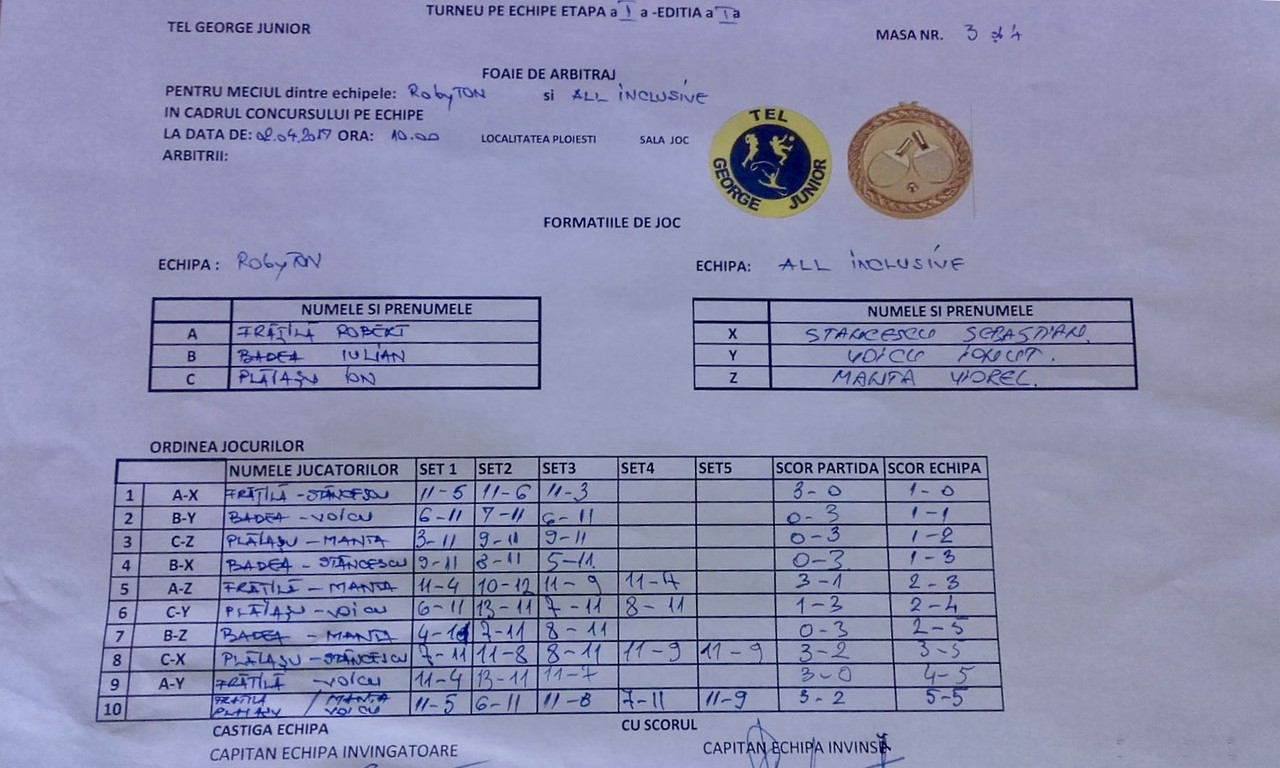 TURNEU PE ECHIPE ETAPA a I a -EDITIA a I a
TEL GEORGE JUNIOR
MASA NR. 3 și 4
FOAIE DE ARBITRAJ
PENTRU MECIUL dintre echipele: RobyTON si ALL INCLUSIVE
IN CADRUL CONCURSULUI PE ECHIPE
LA DATA DE: 02.04.2017 ORA: 10.00 LOCALITATEA PLOIESTI SALA JOC
ARBITRII:
TEL
GEORGE JUNIOR
FORMATIILE DE JOC
ECHIPA : RobyTON
ECHIPA: ALL INCLUSIVE
NUMELE SI PRENUMELE
A FRĂȚILĂ ROBERT
B BADEA IULIAN
C PLĂIAȘU ION
NUMELE SI PRENUMELE
X STANCESCU SEBASTIAN.
Y VOICU IONUT.
Z MANTA VIOREL.
ORDINEA JOCURILOR
NUMELE JUCATORILOR SET 1 SET2 SET3 SET4 SET5 SCOR PARTIDA SCOR ECHIPA
1 A-X FRĂȚILĂ - STĂNCESCU 11-5 11-6 11-3 3-0 1-0
2 B-Y BADEA - VOICU 6-11 7-11 6-11 0-3 1-1
3 C-Z PLĂIAȘU - MANTA 3-11 9-11 9-11 0-3 1-2
4 B-X BADEA - STĂNCESCU 9-11 8-11 5-11. 0-3 1-3
5 A-Z FRĂȚILĂ - MANTA 11-4 10-12 11-9 11-7 3-1 2-3
6 C-Y PLĂIAȘU - VOICU 6-11 13-11 7-11 8-11 1-3 2-4
7 B-Z BADEA - MANTA 4-11 7-11 8-11 0-3 2-5
8 C-X PLĂIAȘU - STĂNCESCU 7-11 11-8 8-11 11-9 11-9 3-2 3-5
9 A-Y FRĂȚILĂ - VOICU 11-4 13-11 11-7 3-0 4-5
10 FRĂȚILĂ PLĂIAȘU / MANTA VOICU 11-5 6-11 11-8 7-11 11-9 3-2 5-5
CASTIGA ECHIPA CU SCORUL
CAPITAN ECHIPA INVINGATOARE CAPITAN ECHIPA INVINSĂ